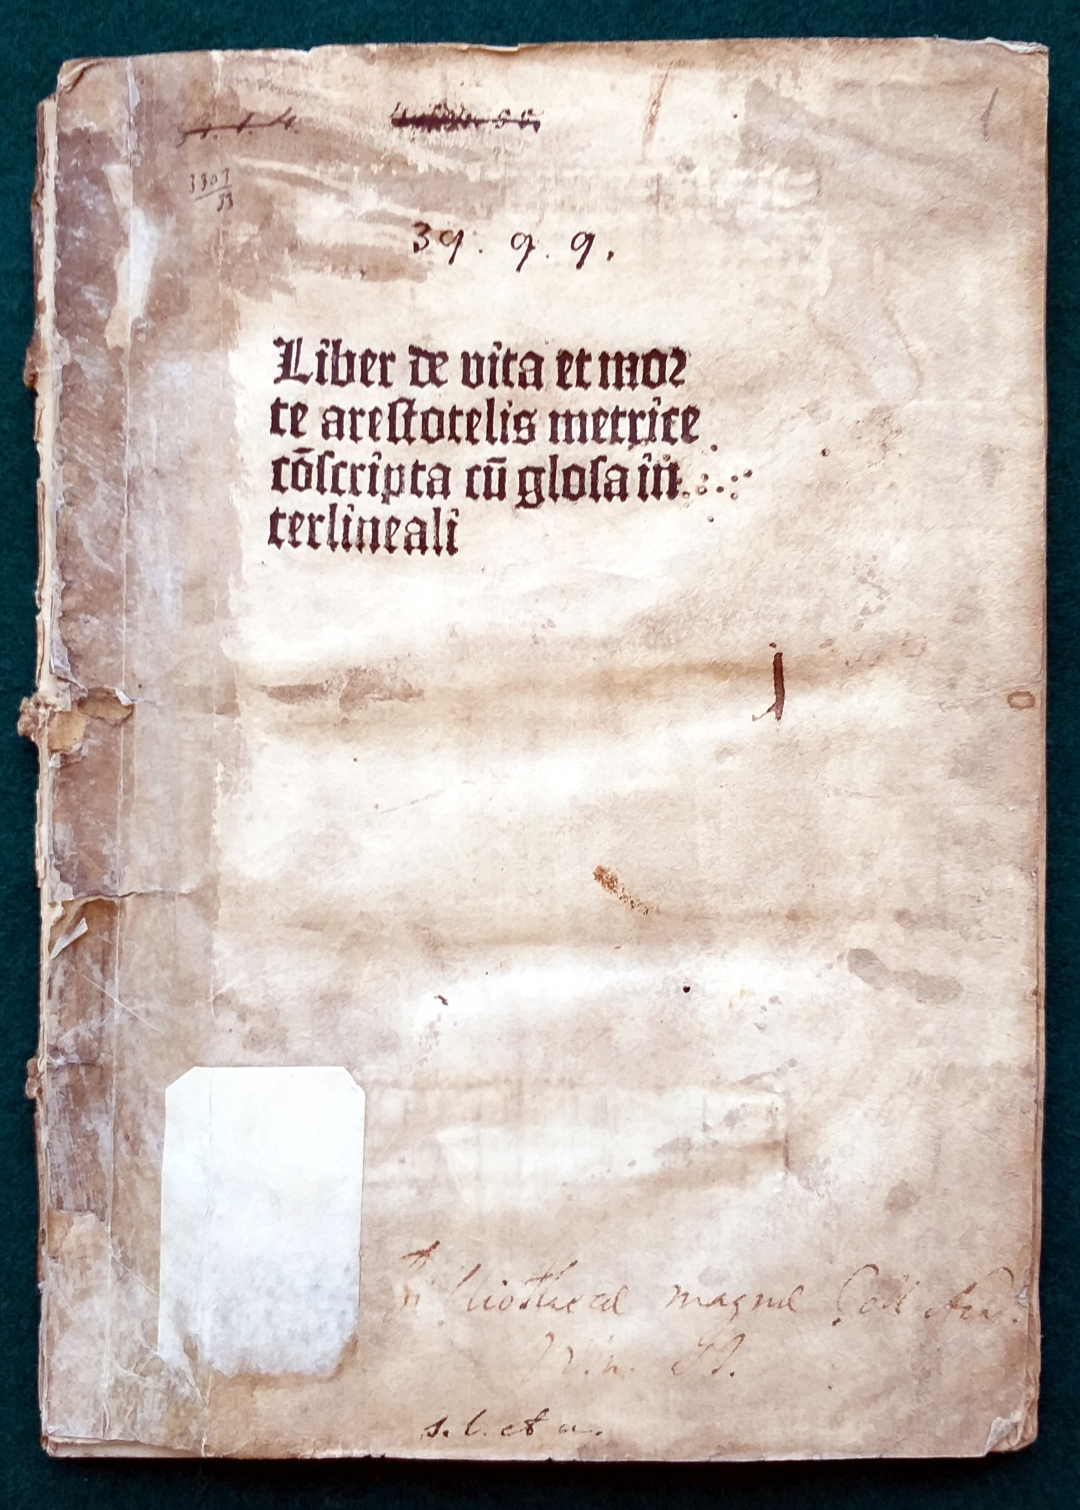 3303
33
39. 9. 9.
Liber de vita et mor
te arestotelis metrice
cōscripta cū glosa in
terlineali
Bibliothecæ magnæ Coll
s. l. et a.